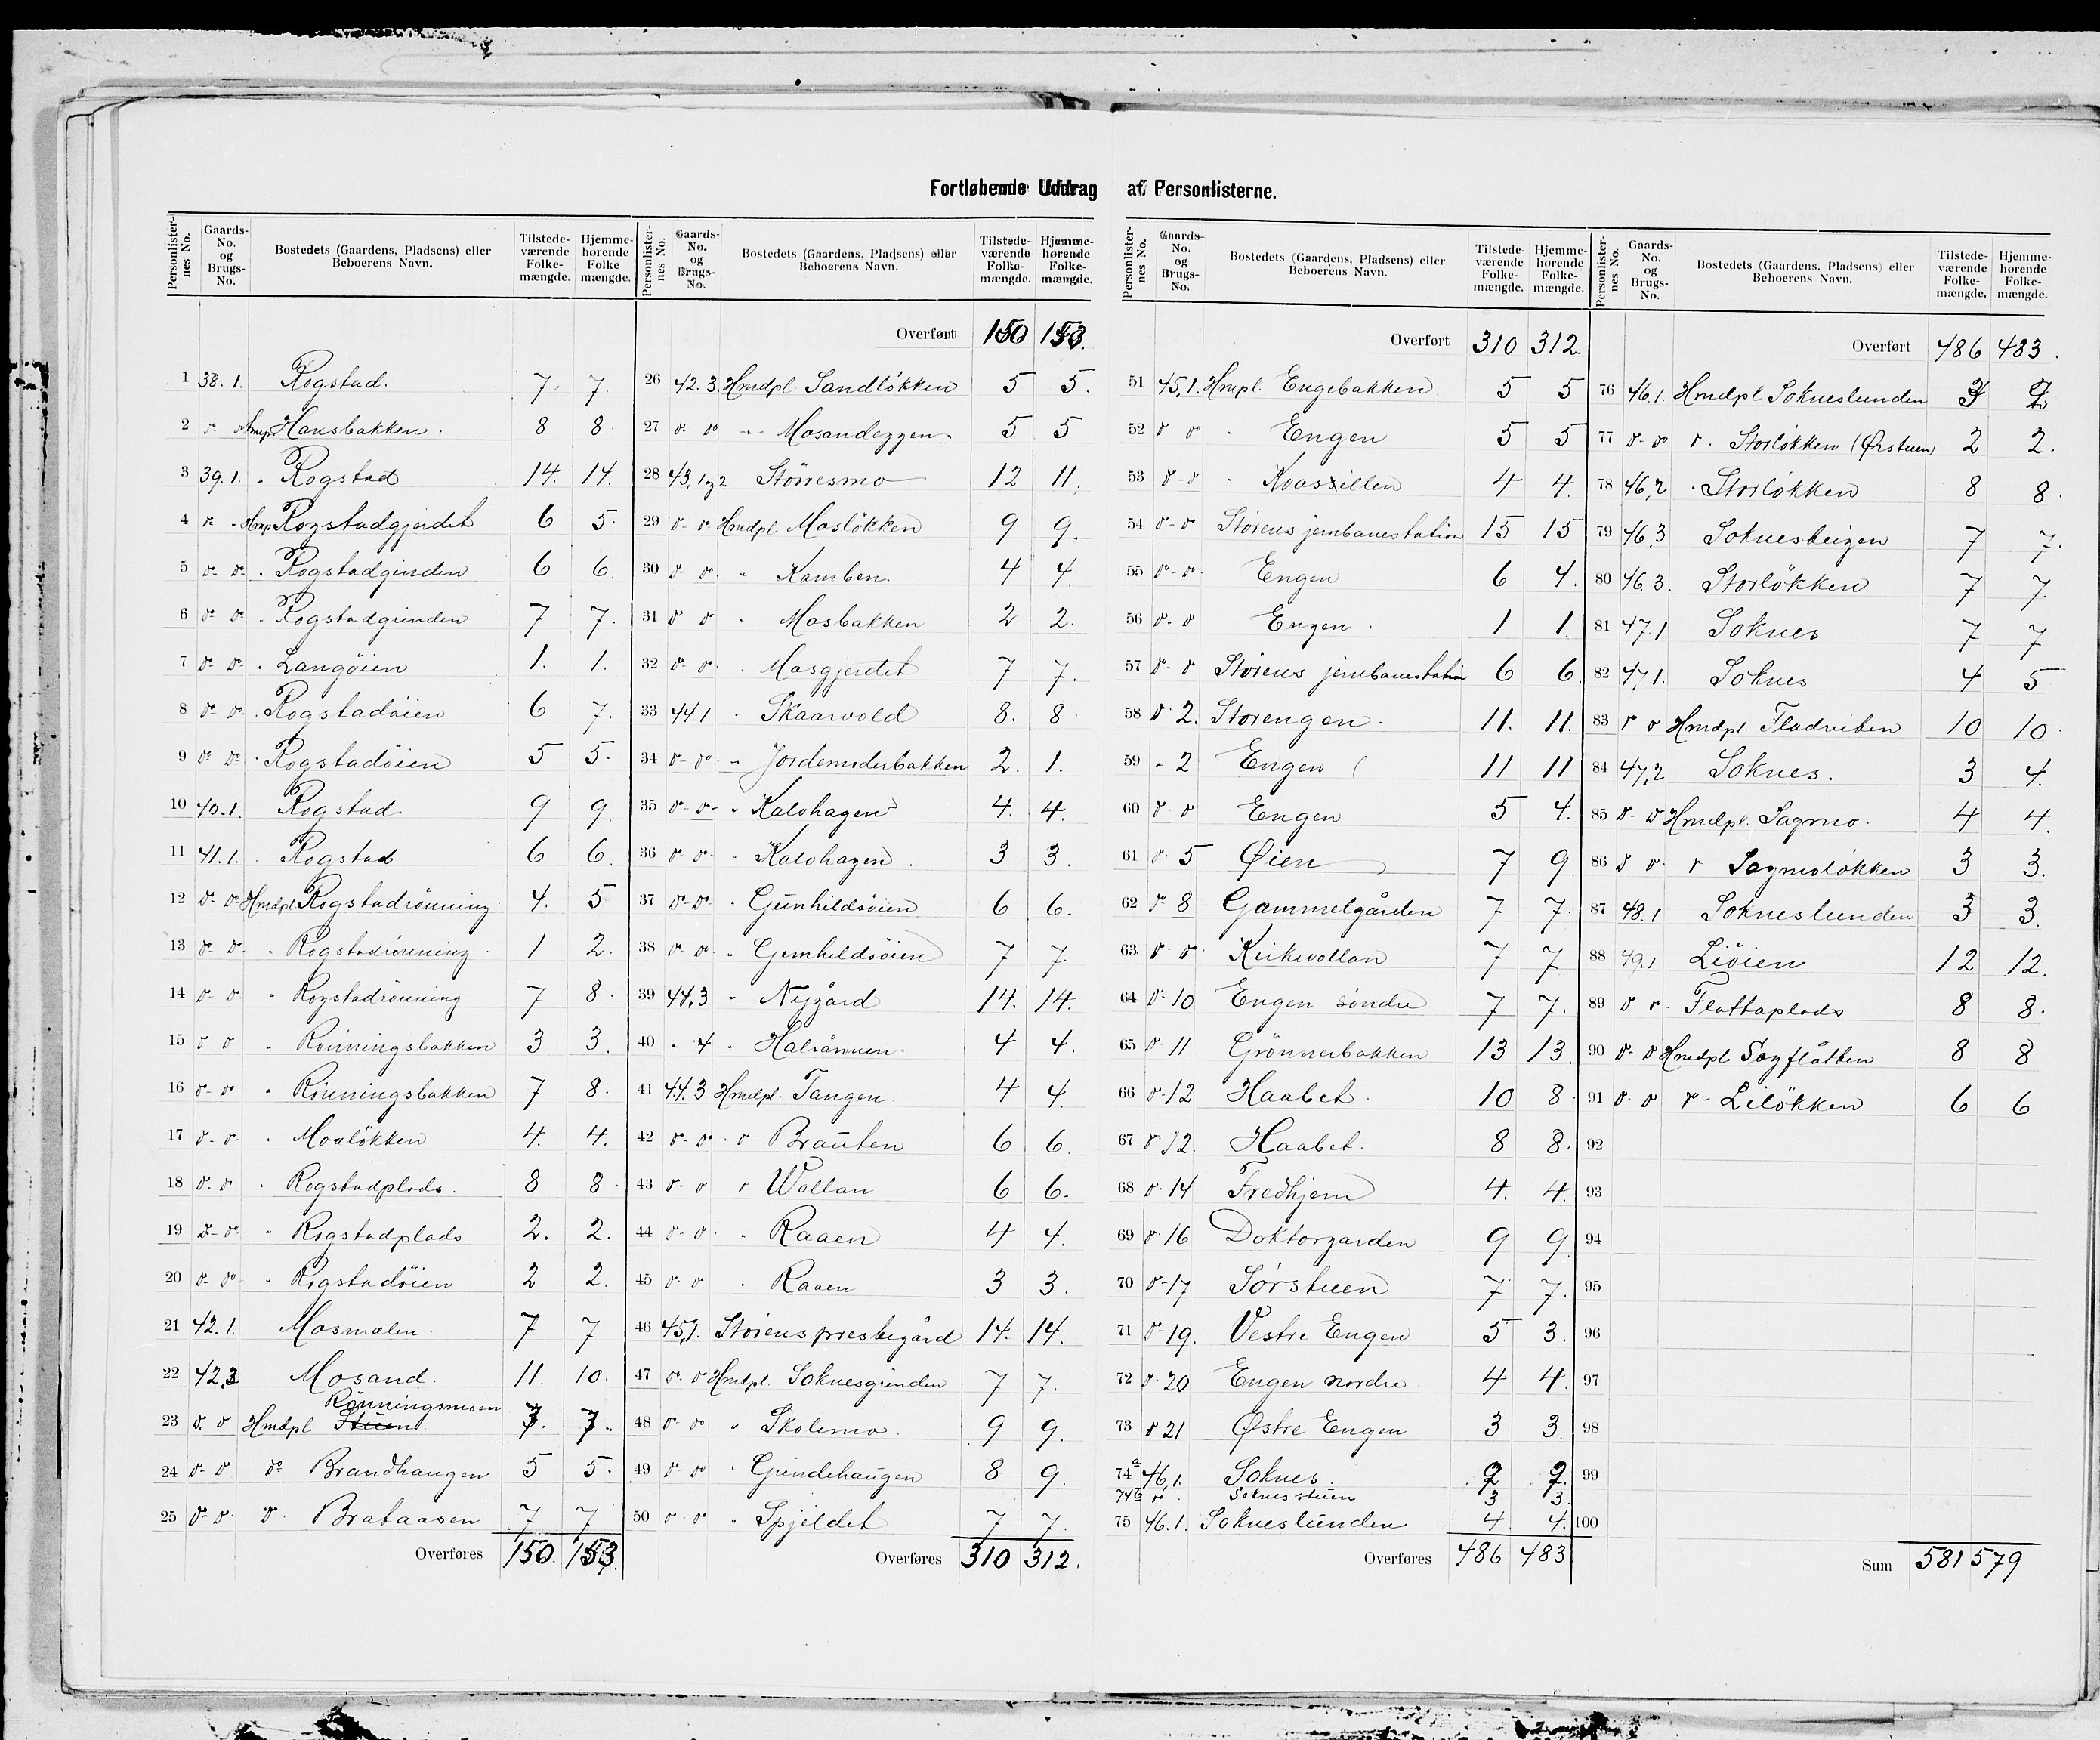 Fortløbende Uddrag af Personlisterne.
Personlister-nes No. Gaards-No. og Brugs-No. Bostedets (Gaardens, Pladsens) eller Beboerens Navn. Tilstede-værende Folke-mængde. Hjemme-hørende Folke mængde.
1 38.1. Rogstad. 7. 7.
2 Hansbakken. 8 8
3 39.1. " Rogstad 14. 14.
4 " Hmp Rogstadgjerdet 6 5.
5 do do " Rogstadginden 6 6.
6 do do " Rogstadgrinden 7 7.
7 do do " Langöien 1. 1.
8 do do " Rogstadöien 6 7.
9 do do " Rogstadöien 5 5.
10 40.1. Rogstad 9 9.
11 41.1. Rogstad 6 6.
12 do do Hmdpl Rogstadrönning 4. 5
13 do do " Rogstadrönning 1 2.
14 do do " Rogstadrönning 7 8.
15 do do " Rönningsbakken 3 3.
16 do do " Rönningsbakken 7 8.
17 do do " Moslökken 4. 4.
18 do do " Rogstadplads. 8 8
19 do do " Rogstadplads 2. 2.
20 do do " Rogstadöien 2 2.
21 42.1. Mosmalen 7 7
22 42.3 Mosand. 11. 10.
Rönningsmoen
23 do do Hmdpl Stuen 7. 7.
24 do do do Brandhaugen 5 5.
25 do do do Brataasen 7 7
Overføres 150. 153.
Personlister-nes No. Gaards-No. og Brugs-No. Bostedets (Gaardens, Pladsens) eller Beboerens Navn. Tilstede-værende Folke-mængde. Hjemme-hørende Folke-mængde.
Overført 150 153.
26 42.3. Hmdpl Sandlökken 5 5.
27 do do " Mosandeggen 5 5
28 43,1og2 Störesmo 12 11.
29 do do Hmdpl Moslökken 9 9.
30 do do " Kamben. 4 4.
31 do do " Mosbakken 2 2.
32 do do " Mosgjerdet 7 7.
33 44.1 " Skaarvold 8. 8
34 do do " Jordemoderbakken 2. 1.
35 do do " Kalvhagen 4. 4.
36 do do " Kalvhagen 3 3.
37 do do " Gunhildsöien 6 6.
38 do do " Gunhildsöien 7 7.
39 44.3 " Nygård 14. 14.
40 " 4 " Halrånnen. 4 4.
41 44.3 Hmdpl. Tangen 4 4.
42 do do do Brauten 6 6.
43 do do Wollan 6 6.
44 do do " Raaen 4 4.
45 do do " Raaen 3 3.
46 45,1. Störens prestegård 14. 14.
47 do do Hmdpl. Soknesgrinden 7 7.
48 do do " Skolemo. 9 9.
49 do do " Grindehaugen 8 9.
50 do do " Spjeldet 7 7.
Overføres 310 312.
Personlister-nes No. Gaards-No. og Brugs-No. Bostedets (Gaardens, Pladsens) eller Beboerens Navn. Tilstede-værende Folke-mængde. Hjemme-hørende Folke-mængde.
Overført 310 312.
51 45,1. Hmpl. Engebakken. 5 5
52 do do " Engen 5 5
53 do do " 4 4.
54 do do Störens jernbanestation 15 15
55 do do Engen 6 4.
56 do do Engen 1 1.
57 do do Störens jernbanestation 6 6.
58 do 2. Storengen. 11. 11.
59 " 2 Engen 11 11.
60 do do Engen 5 4.
61 do 5 Øien 7 9.
62 do 8 Gammelgården 7 7.
63 do do Kirkevollan 7 7
64 do 10 Engen söndre 7 7.
65 do 11 Grönnerbakken 13 13.
66 do 12 Haabet. 10 8
67 do 12. Haabet. 8 8.
68 do 14 Fredhjem 4. 4.
69 do 16 Doktorgarden 9 9.
70 do 17 Sörstuen 7 7.
71 do 19. Vestre Engen 5 3.
72 do 20 Engen nordre 4 4.
73 do 21 Østre Engen 3 3.
74a 46,1. Soknes. 2 2.
74b do Soknesstuen 3 3.
75 46.1. Sokneslunden 4 4.
Overføres 486 483.
Personlister-nes No. Gaards-No. og Brugs-No. Bostedets (Gaardens, Pladsens) eller Beboerens Navn. Tilstede-værende Folke-mængde. Hjemme-hørende Folke-mængde.
Overført 486 483.
76 46.1. Hmdpl Sokneslunden 3 2
77 do do do Storlökken (Ørstuen) 2 2.
78 46,2 " Storlökken 8 8.
79 46,3 Soknesteigen 7 7.
80 46.3. Storlökken 7 7.
81 47.1. Soknes 7 7
82 47,1. Soknes 4 5
83 do do Hmdpl. Fladveiben 10 10.
84 47,2 Soknes. 3 4.
85 do do Hmdpl. Sagmo. 4 4.
86 do do do Sagmolökken 3 3.
87 48.1 Sokneslunden 3 3.
88 49.1 Liöien 12 12.
89 do do Flattaplads 8 8.
90 do do Hmdpl Sagflåtten 8 8
91 do do do Lilökken 6 6
92
93
94
95
96
97
98
99
100
Sum 581 579